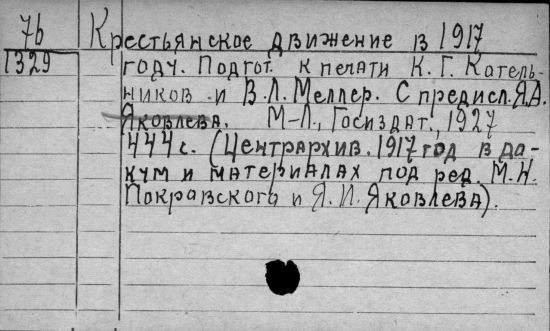 76 Крестьянское движение в 1917
1329 году. Подгот. к печати К. Г. Котель-
ников и В.Л. Меллер. С предисл. Я.А.
Яковлева. М-Л., Госиздат., 1927
444 с. (Центрархив. 1917 год в да-
кум и материалах под ред. М.Н.
Покравского и Я.И. Яковлева).